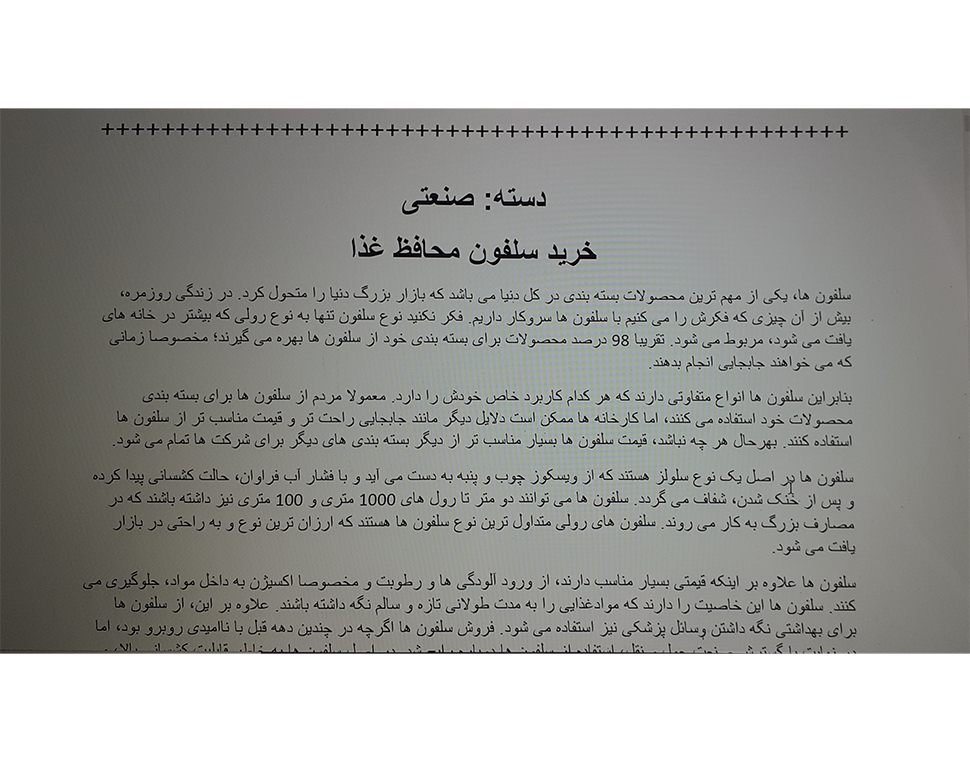 ++++++++++++++++++++++++++++++++++++++++++++++++
دسته: صنعتی
خرید سلفون محافظ غذا
سلفون ها، یکی از مهم ترین محصولات بسته بندی در کل دنیا می باشد که بازار بزرگ دنیا را متحول کرد. در زندگی روزمره،
بیش از آن چیزی که فکرش را می کنیم با سلفون ها سروکار داریم. فکر نکنید نوع سلفون تنها به نوع رولی که بیشتر در خانه های
یافت می شود، مربوط می شود. تقریبا 98 درصد محصولات برای بسته بندی خود از سلفون ها بهره می گیرند؛ مخصوصا زمانی
که می خواهند جابجایی انجام بدهند.
بنابراین سلفون ها انواع متفاوتی دارند که هر کدام کاربرد خاص خودش را دارد. معمولا مردم از سلفون ها برای بسته بندی
محصولات خود استفاده می کنند، اما کارخانه ها ممکن است دلایل دیگر مانند جابجایی راحت تر و قیمت مناسب تر از سلفون ها
استفاده کنند. بهرحال هر چه نباشد، قیمت سلفون ها بسیار مناسب تر از دیگر بسته بندی های دیگر برای شرکت ها تمام می شود.
سلفون ها در اصل یک نوع سلولز هستند که از ویسکوز چوب و پنبه به دست می آید و با فشار آب فراوان، حالت کشسانی پیدا کرده
و پس از خُنک شدن، شفاف می گردد. سلفون ها می توانند دو متر تا رول های 1000 متری و 100 متری نیز داشته باشند که در
مصارف بزرگ به کار می روند. سلفون های رولی متداول ترین نوع سلفون ها هستند که ارزان ترین نوع و به راحتی در بازار
یافت می شود.
سلفون ها علاوه بر اینکه قیمتی بسیار مناسب دارند، از ورود آلودگی ها و رطوبت و مخصوصا اکسیژن به داخل مواد، جلوگیری می
کنند. سلفون ها این خاصیت را دارند که موادغذایی را به مدت طولانی تازه و سالم نگه داشته باشند. علاوه بر این، از سلفون ها
برای بهداشتی نگه داشتن وسائل پزشکی نیز استفاده می شود. فروش سلفون ها اگرچه در چندین دهه قبل با ناامیدی روبرو بود، اما